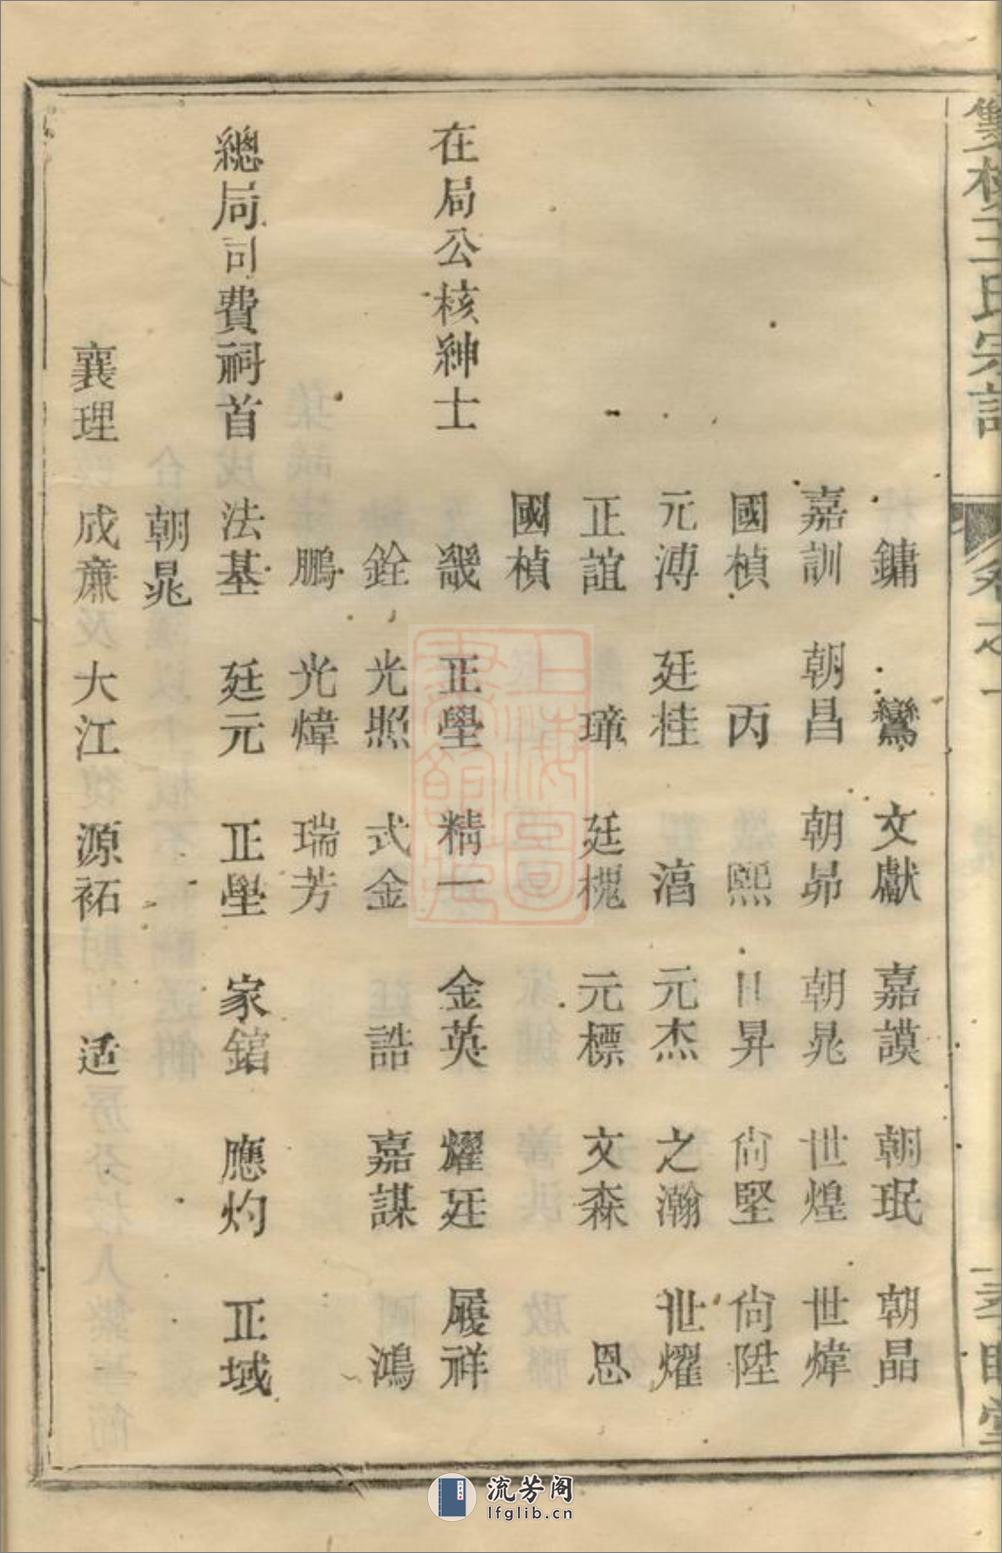 王氏宗譜
卷之一
孝睦堂
鏞 鸞 文獻 嘉謨 朝珉 朝品
嘉訓 朝昌 朝昴 朝晃 世煌 世煒
國楨 丙 熙 日昇 尙堅 尙陞
元溥 廷桂 滈 元杰 之瀚 世燿
正誼 璋 廷槐 元標 文森 恩
國楨
在局公核紳士 畿 正學 精一 金英 燿廷 履祥
銓 光照 式金 誥 嘉謀 鴻
鵬 光煒 瑞芳
總局司費祠首 法基 廷元 正學 家錧 應灼 正域
朝晃
襄理 成廉 大江 源祏 适
上海圖書館藏
流芳阁
lfglib.cn